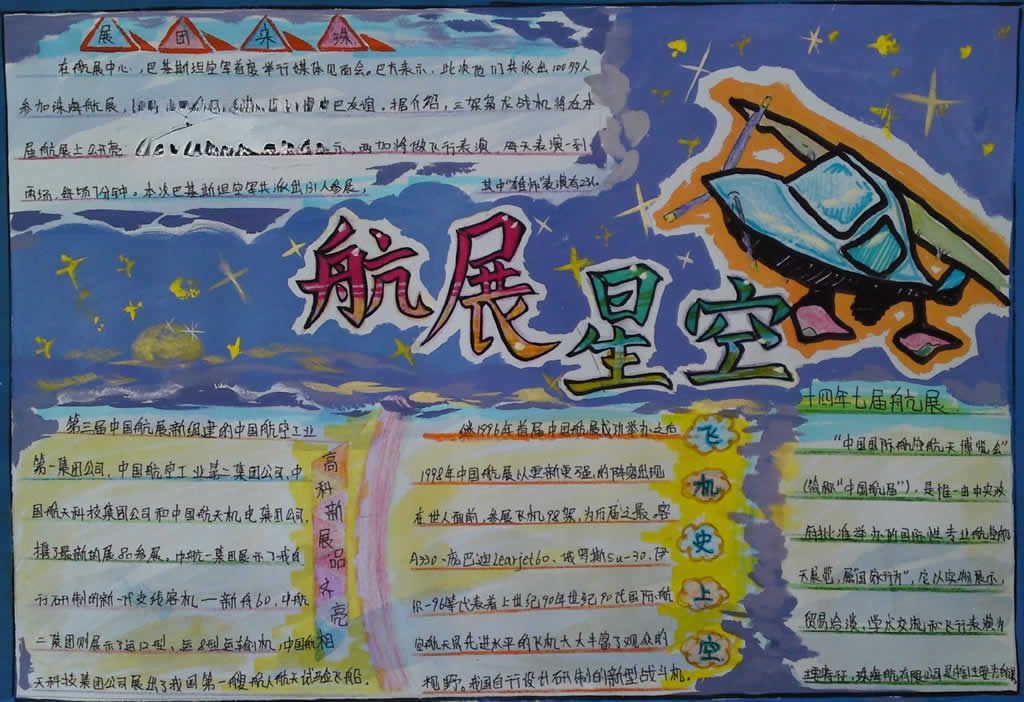 展团来珠
在航展中心，巴基斯坦空军首度举行媒体见面会。巴方表示，此次他们共派出100多人
参加珠海航展，中巴友谊。据介绍，三架枭龙战机将在本
届航展上公开亮示，两架将做飞行表演，每天表演一到
两场，每场7分钟。本次巴基斯坦空军共派出131人参展，其中"雄师"表演者23人
航展星空
第三届中国航展新组建的中国航空工业
第一集团公司、中国航空工业第二集团公司、中
国航天科技集团公司和中国航天机电集团公司，
携了最新的展品参展，中航一集团展示了我自
行研制的新一代支线客机一新舟60，中航
二集团则展示了运12型、运8型运输机，中国航
天科技集团公司展出了我国第一艘航天试验飞船．
高科新展品齐亮相
继1996年首届中国航展成功举办之后
1998年中国航展以更新更强的阵容出现
在世人面前，参展飞机98架，为历届之最。空客
A330、庞巴迪Learjet60、俄罗斯Su-30、伊
尔-96等代表着上世纪90年世纪90代国际航
空航天界先进水平的飞机大大丰富了观众的
视野。我国自行设计研制的新型战斗机．
飞机史上空
十四年七届航展
"中国国际航空航天博览会"
(简称"中国航届")，是惟一由中央政
府批准举办的国际性专业航空航
天展览，属"国家行为"，它以实物展示，
贸易洽谈，学术交流和飞行表演为
主要特征，珠海航有限公司是中国主要方